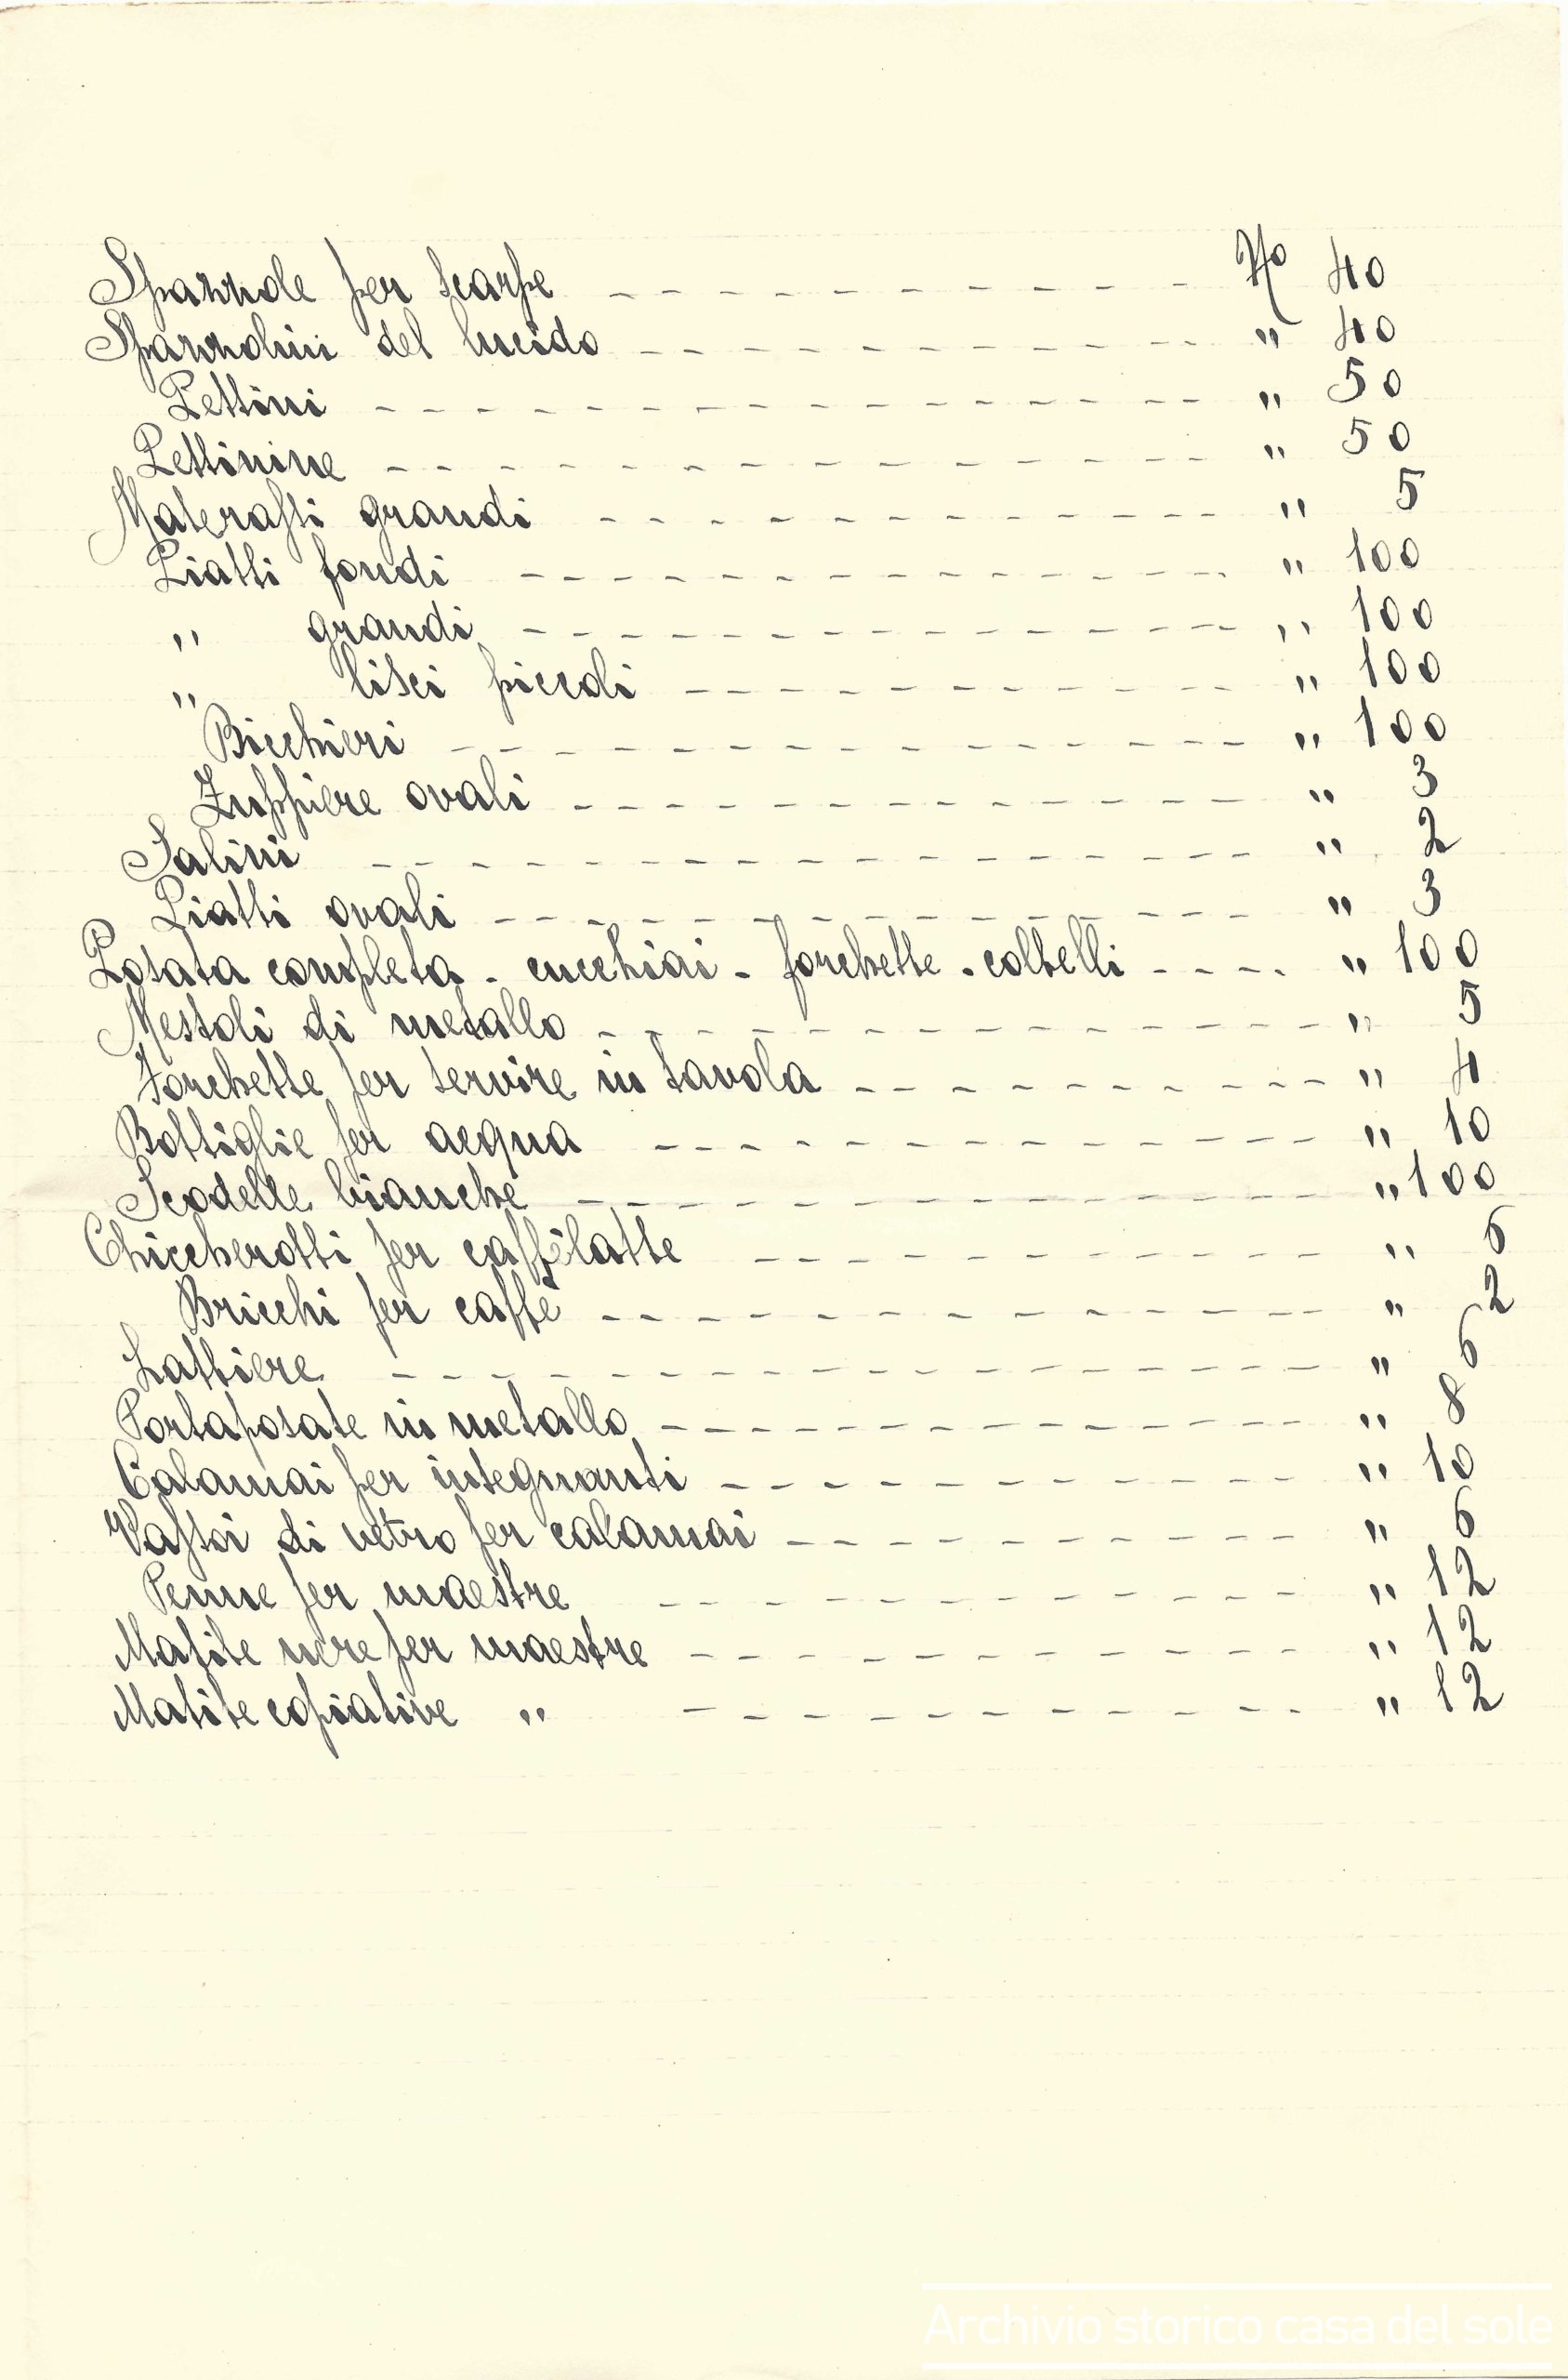 Spazzole per scarpe - - - - - - - - - - - No 40
Spazzolini del lucido - - - - - - - - - - - " 40
Pettini - - - - - - - - - - - - - - - - " 50
Pettinine - - - - - - - - - - - - - - - " 50
Materassi grandi - - - - - - - - - - - - " 5
Piatti fondi - - - - - - - - - - - - - " 100
" grandi - - - - - - - - - - - - - " 100
" lisci piccoli - - - - - - - - - - " 100
Bicchieri - - - - - - - - - - - - - - " 100
Zuppiere ovali - - - - - - - - - - - - " 3
Salini - - - - - - - - - - - - - - - " 2
Piatti ovali - - - - - - - - - - - - - " 3
Posata completa - cucchiai - forchette - coltelli - - - - " 100
Mestoli di metallo - - - - - - - - - - - - " 5
Forchette per servire in tavola - - - - - - - - - - " 4
Bottiglie per acqua - - - - - - - - - - - - " 10
Scodelle bianche - - - - - - - - - - - - - " 100
Chiccherotti per caffèlatte - - - - - - - - - - - " 6
Bricchi per caffè - - - - - - - - - - - - - " 2
Lattiere - - - - - - - - - - - - - - - - " 6
Portaposate in metallo - - - - - - - - - - - - " 8
Calamai per insegnanti - - - - - - - - - - - " 10
Vassoi di vetro per calamai - - - - - - - - - - " 6
Penne per maestre - - - - - - - - - - - - " 12
Matite nere per maestre - - - - - - - - - - - " 12
Matite copiative " - - - - - - - - - - - " 12
Archivio storico casa del sole